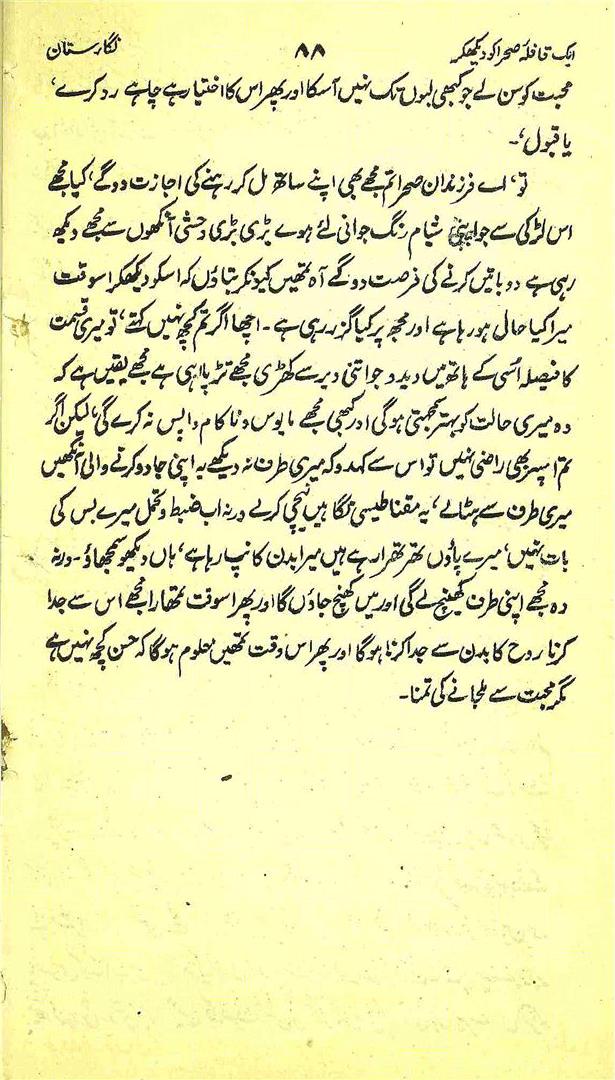 ایک قافلۂ صحرا کو دیکھکر ۸۸ نگارستان
محبت کو سن لے جو کبھی لبوں تک نہیں آسکا اور پھر اس کا اختیار ہے چاہے رد کرے،
یا قبول،۔
تو، اے فرزندان صحرا تم مجھے بھی اپنے ساتھ مل کر رہنے کی اجازت دوگے، کیا مجھے
اس لڑکی سے جو اپنی شیام رنگ جوانی لئے ہوے بڑی بڑی وحشی آنکھوں سے مجھے دیکھ
رہی ہے دو باتیں کرنے کی فرصت دوگے آہ تمھیں کیونکر بتاؤں کہ اسکو دیکھکر اسوقت
میرا کیا حال ہورہا ہے اور مجھ پر کیا گزر رہی ہے۔ اچھا اگر تم کچھ نہیں کہتے، تو میری قسمت
کا فیصلہ اُسی کے ہاتھ میں دیدو جو اتنی دیر سے کھڑی مجھے تڑپا رہی ہے مجھے یقین ہے کہ
وہ میری حالت کو بہتر سمجھتی ہوگی اور کبھی مجھے مایوس و ناکام واپس نہ کرے گی، لیکن اگر
تم اسپر بھی راضی نہیں تو اس سے کہدو کہ میری طرف نہ دیکھے یہ اپنی جادو کرنے والی آنکھیں
میری طرف سے ہٹالے، یہ مقناطیسی نگاہیں نیچی کرلے ورنہ اب ضبط و تحمل میرے بس کی
بات نہیں، میرے پاؤں تھر تھرا رہے ہیں میرا بدن کانپ رہا ہے، ہاں دیکھو سمجھاؤ۔ ورنہ
وہ مجھے اپنی طرف کھینچ لے گی اور میں کھنچ جاؤں گا اور پھر اسوقت تمھارا مجھے اس سے جدا
کرنا روح کا بدن سے جدا کرنا ہوگا اور پھر اس وقت تمھیں معلوم ہوگا کہ حسن کچھ نہیں ہے
مگر محبت سے ملجانے کی تمنا۔